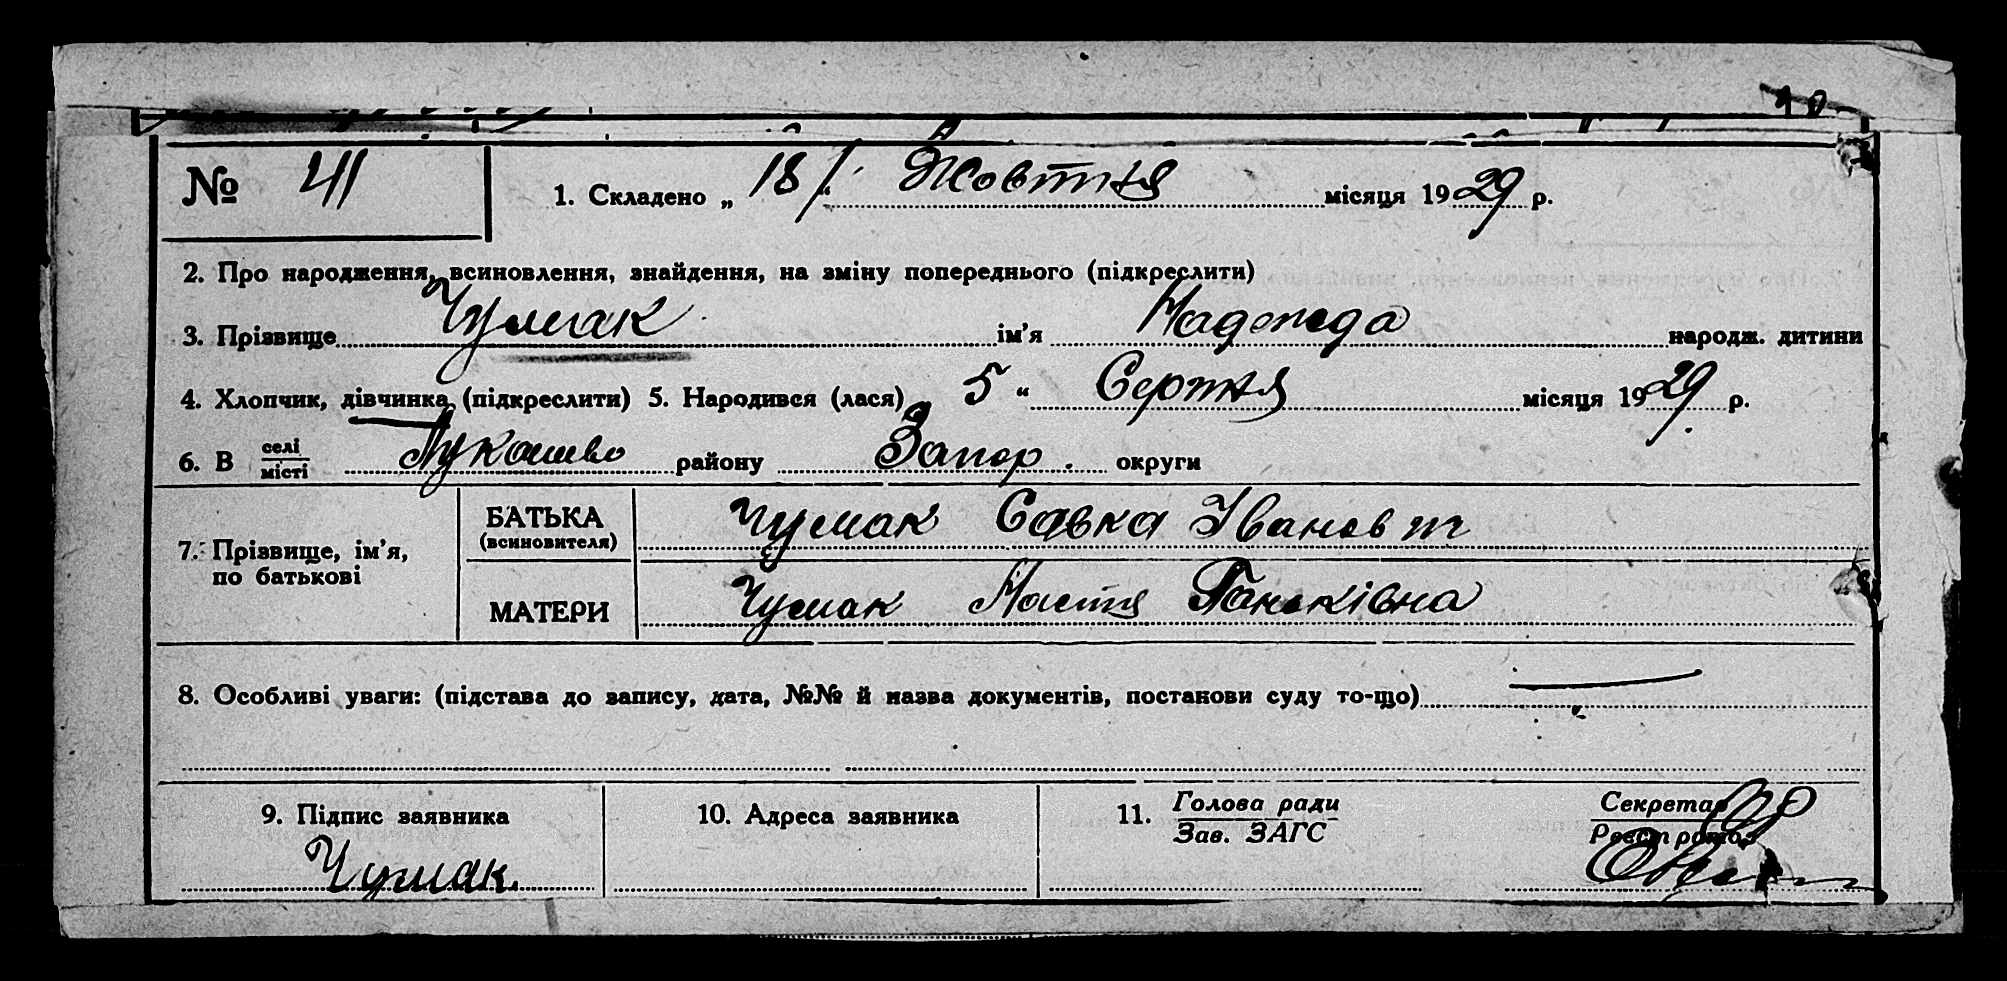 10
№ 411 1. Складено „ 18 /. Жовтня місяця 1929 р.
2. Про народження, всиновлення, знайдення, на зміну попереднього (підкреслити)
3. Прізвище Чумак ім’я Надежда народж. дитини
4. Хлопчик, дівчинка, (підкреслити) 5. Народився (лася) 5 “ Серпня місяця 1929 р.
6. В селі/місті Лукашево району Запор. округи
7. Прізвище, ім’я, по батькові
БАТЬКА (всиновителя) Чумак Савка Іванов
МАТЕРИ Чумак Настя Паньківна
8. Особливі уваги: (підстава до запису, дата, №№ й назва документів, постанови суду то-що)
9. Підпис заявника 10. Адреса заявника 11. Голова ради/Зав. ЗАГС Секретар/Реєстратор
Чумак.